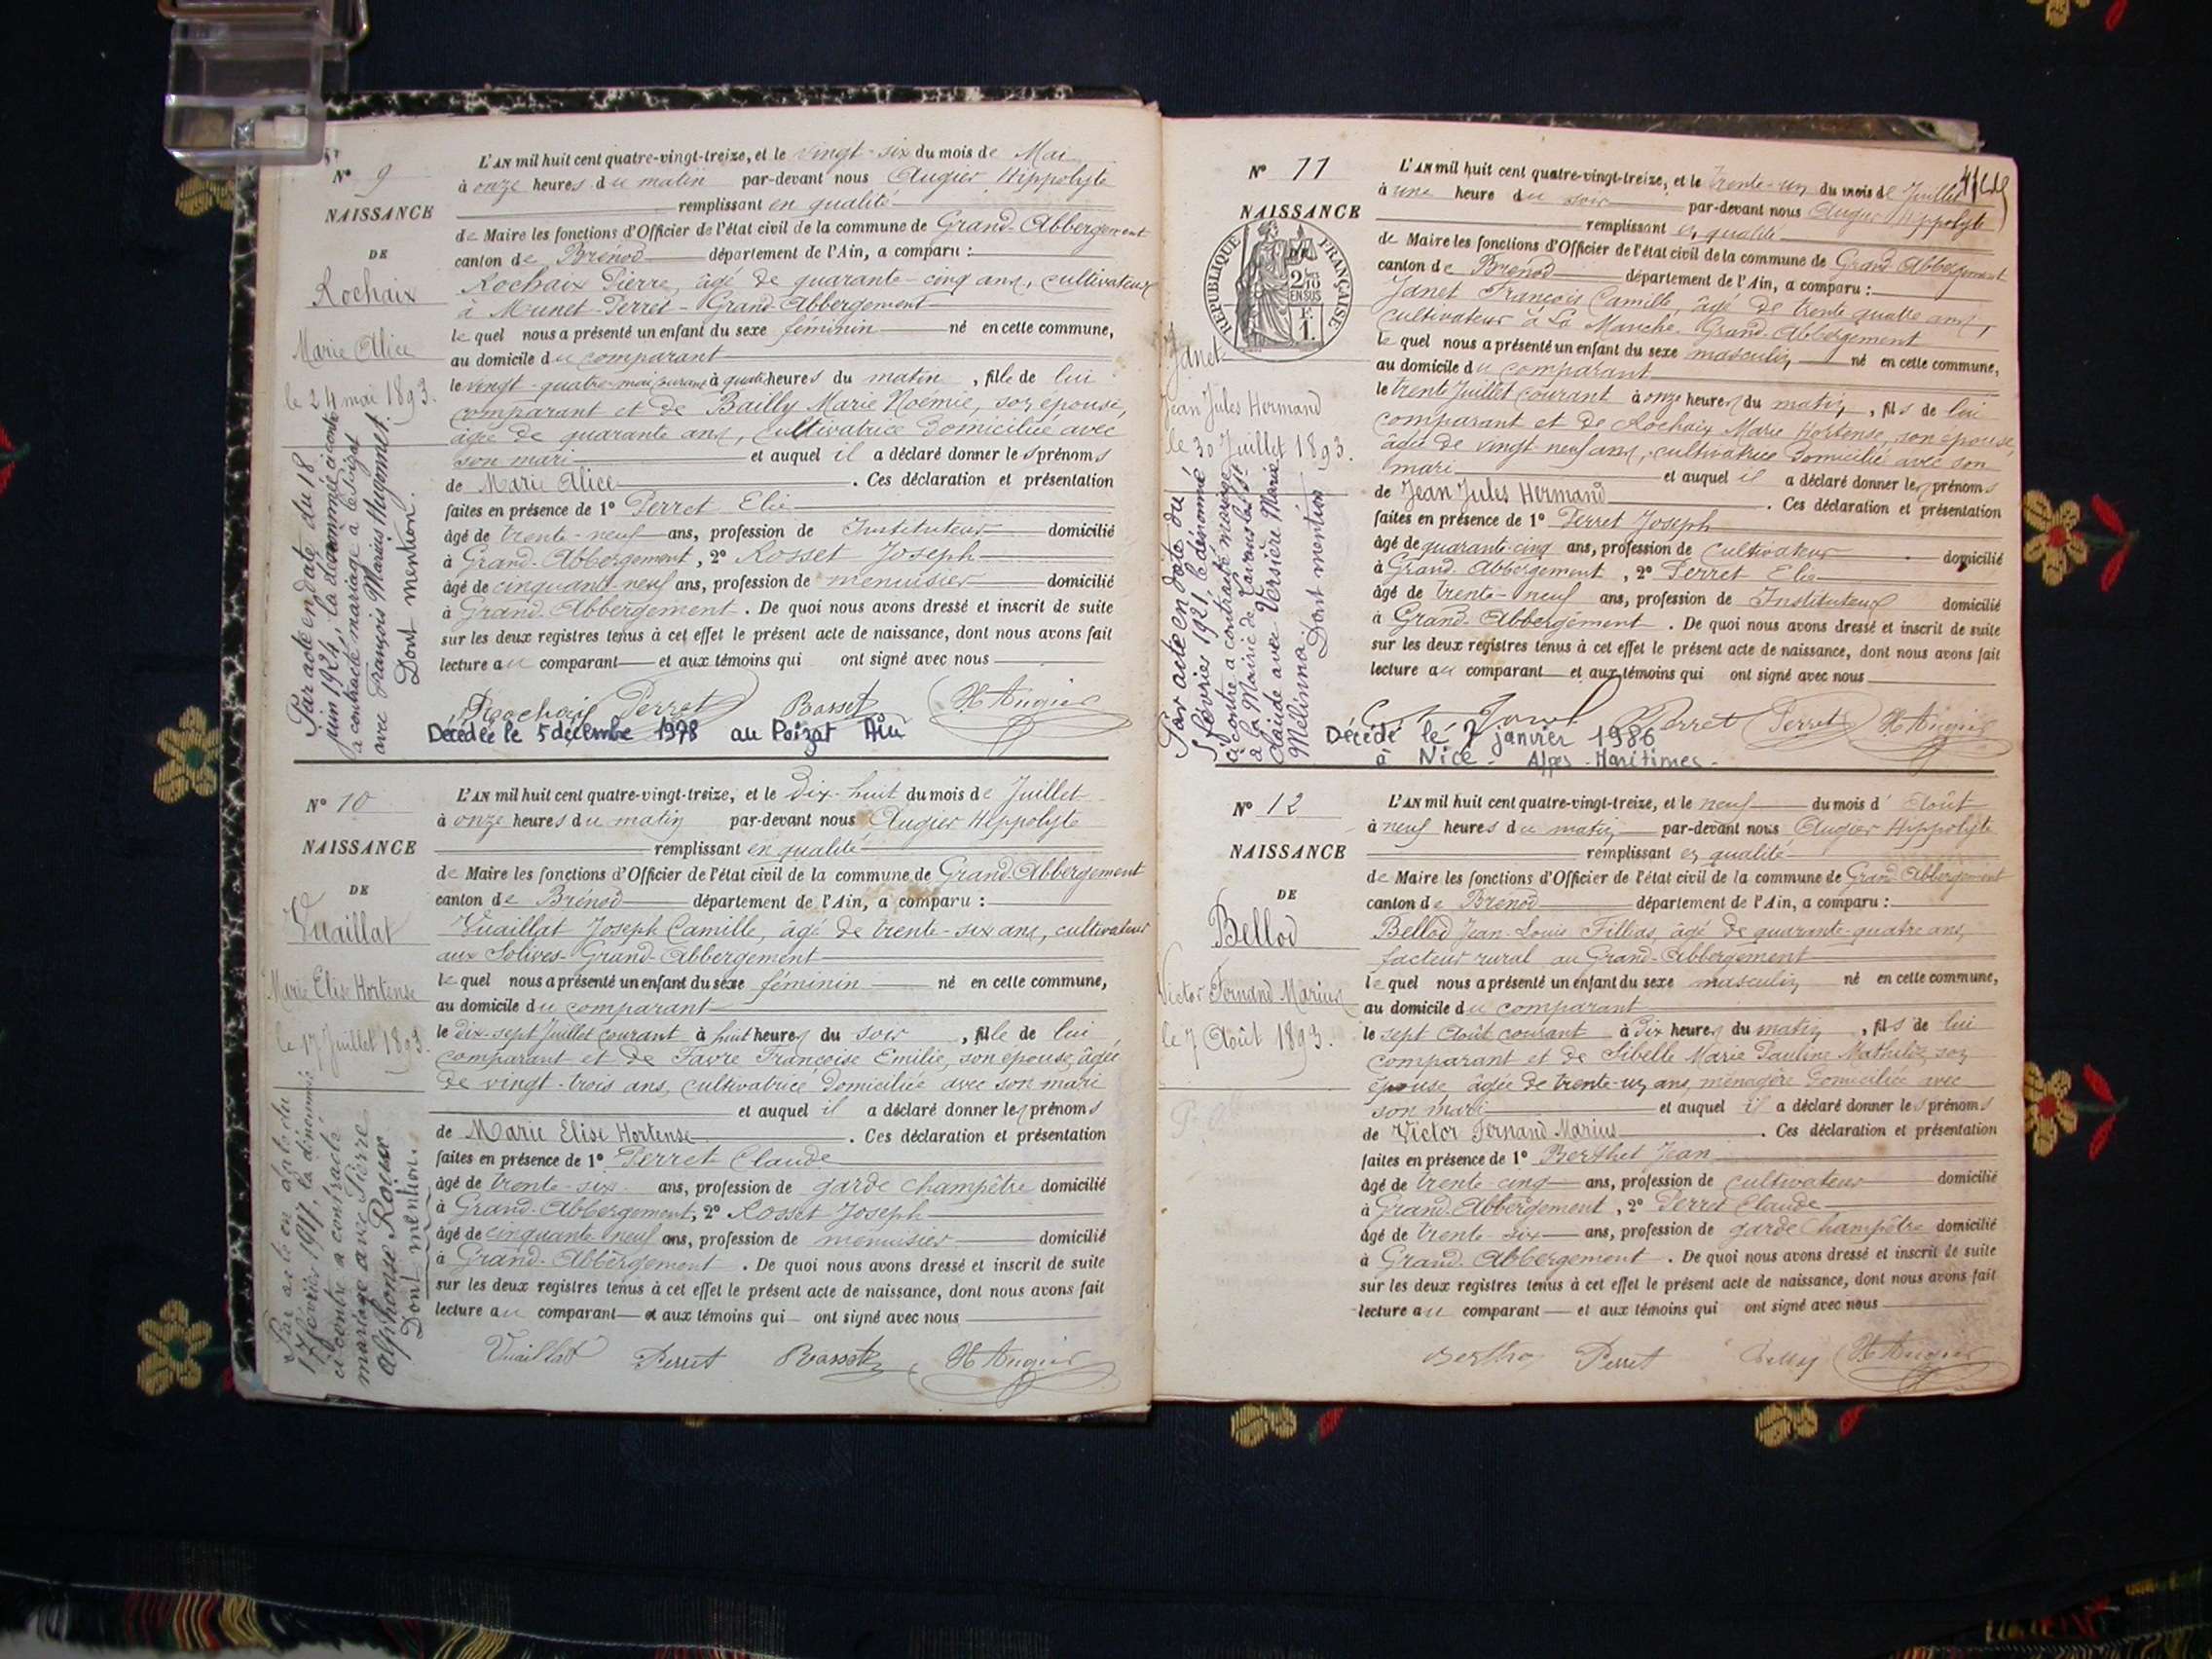 N° 9
NAISSANCE
DE
Rochaix
Marie Alice
le 24 mai 1893.
Par acte en date du 18
juin 1924, la dénommée ci contre
a contracté mariage à le Poizat
avec François Marius Hugonnet.
Dont mention.
L'AN mil huit cent quatre-vingt-treize, et le vingt-six du mois de Mai
à onze heures du matin par-devant nous Augier Hippolyte
remplissant en qualité
de Maire les fonctions d'Officier de l'état civil de la commune de Grand-Abbergement
canton de Brénod département de l'Ain, a comparu :
Rochaix Pierre, âgé de quarante-cinq ans, cultivateur
à Meunet-Perret-Grand-Abbergement
lequel nous a présenté un enfant du sexe féminin né en cette commune,
au domicile du comparant
le vingt-quatre mai courant à quatre heures du matin, fille de lui
comparant et de Bailly Marie Noémie, son épouse,
âgée de quarante ans, cultivatrice domiciliée avec
son mari et auquel il a déclaré donner les prénoms
de Marie Alice. Ces déclaration et présentation
faites en présence de 1° Perret Elie
âgé de trente-neuf ans, profession de Instituteur domicilié
à Grand-Abbergement, 2° Rosset Joseph
âgé de cinquante-neuf ans, profession de menuisier domicilié
à Grand-Abbergement. De quoi nous avons dressé et inscrit de suite
sur les deux registres tenus à cet effet le présent acte de naissance, dont nous avons fait
lecture au comparant et aux témoins qui ont signé avec nous
Rochaix Perret Rosset H Augier
Décédée le 5 décembre 1978 au Poizat Ain
N° 10
NAISSANCE
DE
Vuaillat
Marie Elise Hortense
le 17 Juillet 1893.
Par acte en date du
17 février 1917, la dénommée
ci contre a contracté
mariage avec Pierre
Alphonse Roux
Dont mention.
L'AN mil huit cent quatre-vingt-treize, et le dix-huit du mois de Juillet
à onze heures du matin par-devant nous Augier Hippolyte
remplissant en qualité
de Maire les fonctions d'Officier de l'état civil de la commune de Grand-Abbergement
canton de Brénod département de l'Ain, a comparu :
Vuaillat Joseph Camille, âgé de trente-six ans, cultivateur
aux Solives-Grand-Abbergement
lequel nous a présenté un enfant du sexe féminin né en cette commune,
au domicile du comparant
le dix-sept Juillet courant à huit heures du soir, fille de lui
comparant et de Favre Françoise Emilie, son épouse, âgée
de vingt-trois ans, cultivatrice domiciliée avec son mari
et auquel il a déclaré donner les prénoms
de Marie Elise Hortense. Ces déclaration et présentation
faites en présence de 1° Perret Claude
âgé de trente-six ans, profession de garde champêtre domicilié
à Grand-Abbergement, 2° Rosset Joseph
âgé de cinquante neuf ans, profession de menuisier domicilié
à Grand-Abbergement. De quoi nous avons dressé et inscrit de suite
sur les deux registres tenus à cet effet le présent acte de naissance, dont nous avons fait
lecture au comparant et aux témoins qui ont signé avec nous
Vuaillat Perret Rosset H Augier
N° 11
NAISSANCE
RÉPUBLIQUE FRANÇAISE
2/10
EN SUS
1.
Janet
Jean Jules Hermand
le 30 Juillet 1893.
Par acte en date du
5 février 1921, le dénommé
ci contre a contracté mariage
à la Mairie de Lavans les St
Claude avec Versière Marie
Mélinna.
Dont mention
L'AN mil huit cent quatre-vingt-treize, et le trente-un du mois de Juillet
à une heure du soir par-devant nous Augier Hippolyte
remplissant en qualité
de Maire les fonctions d'Officier de l'état civil de la commune de Grand-Abbergement
canton de Brénod département de l'Ain, a comparu :
Janet François Camille, âgé de trente quatre ans,
cultivateur à La Manche Grand-Abbergement
lequel nous a présenté un enfant du sexe masculin né en cette commune,
au domicile du comparant
le trente Juillet courant à onze heures du matin, fils de lui
comparant et de Rochaix Marie Hortense, son épouse,
âgée de vingt-neuf ans, cultivatrice domicilié avec son
mari et auquel il a déclaré donner les prénoms
de Jean Jules Hermand. Ces déclaration et présentation
faites en présence de 1° Perret Joseph
âgé de quarante-cinq ans, profession de cultivateur domicilié
à Grand-Abbergement, 2° Perret Elie
âgé de trente-neuf ans, profession de Instituteur domicilié
à Grand-Abbergement. De quoi nous avons dressé et inscrit de suite
sur les deux registres tenus à cet effet le présent acte de naissance, dont nous avons fait
lecture au comparant et aux témoins qui ont signé avec nous
Perret Perret H Augier
Décédé le 7 janvier 1986
à Nice - Alpes-Maritimes -
N° 12
NAISSANCE
DE
Bellod
Victor Fernand Marius
le 7 Août 1893.
L'AN mil huit cent quatre-vingt-treize, et le neuf du mois d'Août
à neuf heures du matin par-devant nous Augier Hippolyte
remplissant en qualité
de Maire les fonctions d'Officier de l'état civil de la commune de Grand-Abbergement
canton de Brénod département de l'Ain, a comparu :
Bellod Jean-Louis Fillias, âgé de quarante-quatre ans,
facteur rural au Grand-Abbergement
lequel nous a présenté un enfant du sexe masculin né en cette commune,
au domicile du comparant
le sept Août courant à dix heures du matin, fils de lui
comparant et de Sibelle Marie Pauline Mathilde, son
épouse, âgée de trente-un ans, ménagère domiciliée avec
son mari et auquel il a déclaré donner les prénoms
de Victor Fernand Marius. Ces déclaration et présentation
faites en présence de 1° Berthet Jean
âgé de trente-cinq ans, profession de cultivateur domicilié
à Grand-Abbergement, 2° Perret Claude
âgé de trente-six ans, profession de garde champêtre domicilié
à Grand-Abbergement. De quoi nous avons dressé et inscrit de suite
sur les deux registres tenus à cet effet le présent acte de naissance, dont nous avons fait
lecture au comparant et aux témoins qui ont signé avec nous
Perret H Augier